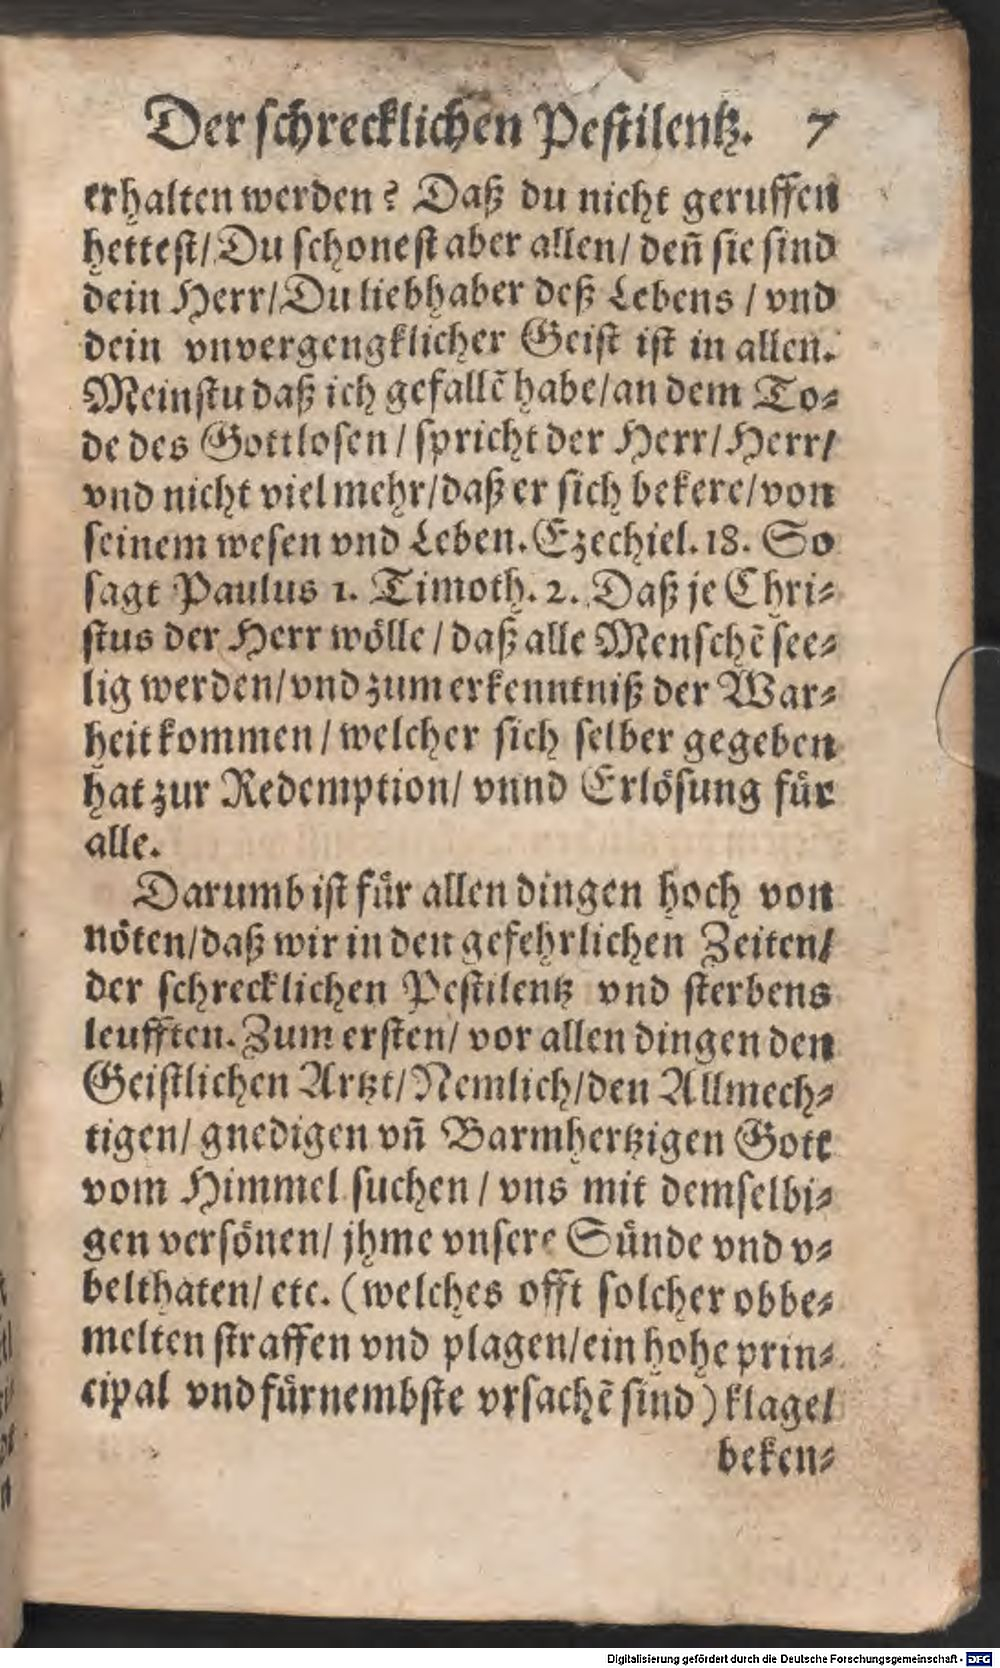 Der schrecklichen Pestilentz. 7
erhalten werden? Daß du nicht geruffen
hettest/Du schonest aber allen/ deñ sie sind
dein Herr/Du liebhaber deß Lebens / vnd
dein vnvergengklicher Geist ist in allen.
Meinstu daß ich gefallẽ habe/an dem To⸗
de des Gottlosen / spricht der Herr/Herr/
vnd nicht viel mehr/daß er sich bekere/von
seinem wesen vnd Leben. Ezechiel. 18. So
sagt Paulus 1. Timoth. 2. Daß je Chri⸗
stus der Herr wölle / daß alle Menschẽ see⸗
lig werden/vnd zum erkenntniß der War⸗
heit kommen / welcher sich selber gegeben
hat zur Redemption/ vnnd Erlösung für
alle.
Darumb ist für allen dingen hoch von
nöten/daß wir in den gefehrlichen Zeiten/
der schrecklichen Pestilentz vnd sterbens
leufften. Zum ersten/ vor allen dingen den
Geistlichen Artzt/Nemlich/den Allmech⸗
tigen/ gnedigen vñ Barmhertzigen Gott
vom Himmel suchen / vns mit demselbi⸗
gen versönen/ jhme vnsere Sünde vnd v⸗
belthaten/ etc. (welches offt solcher obbe⸗
melten straffen vnd plagen/ein hohe prin⸗
cipal vnd fürnembste vrsachẽ sind) klage/
beken⸗
Digitalisierung gefördert durch die Deutsche Forschungsgemeinschaft - DFG